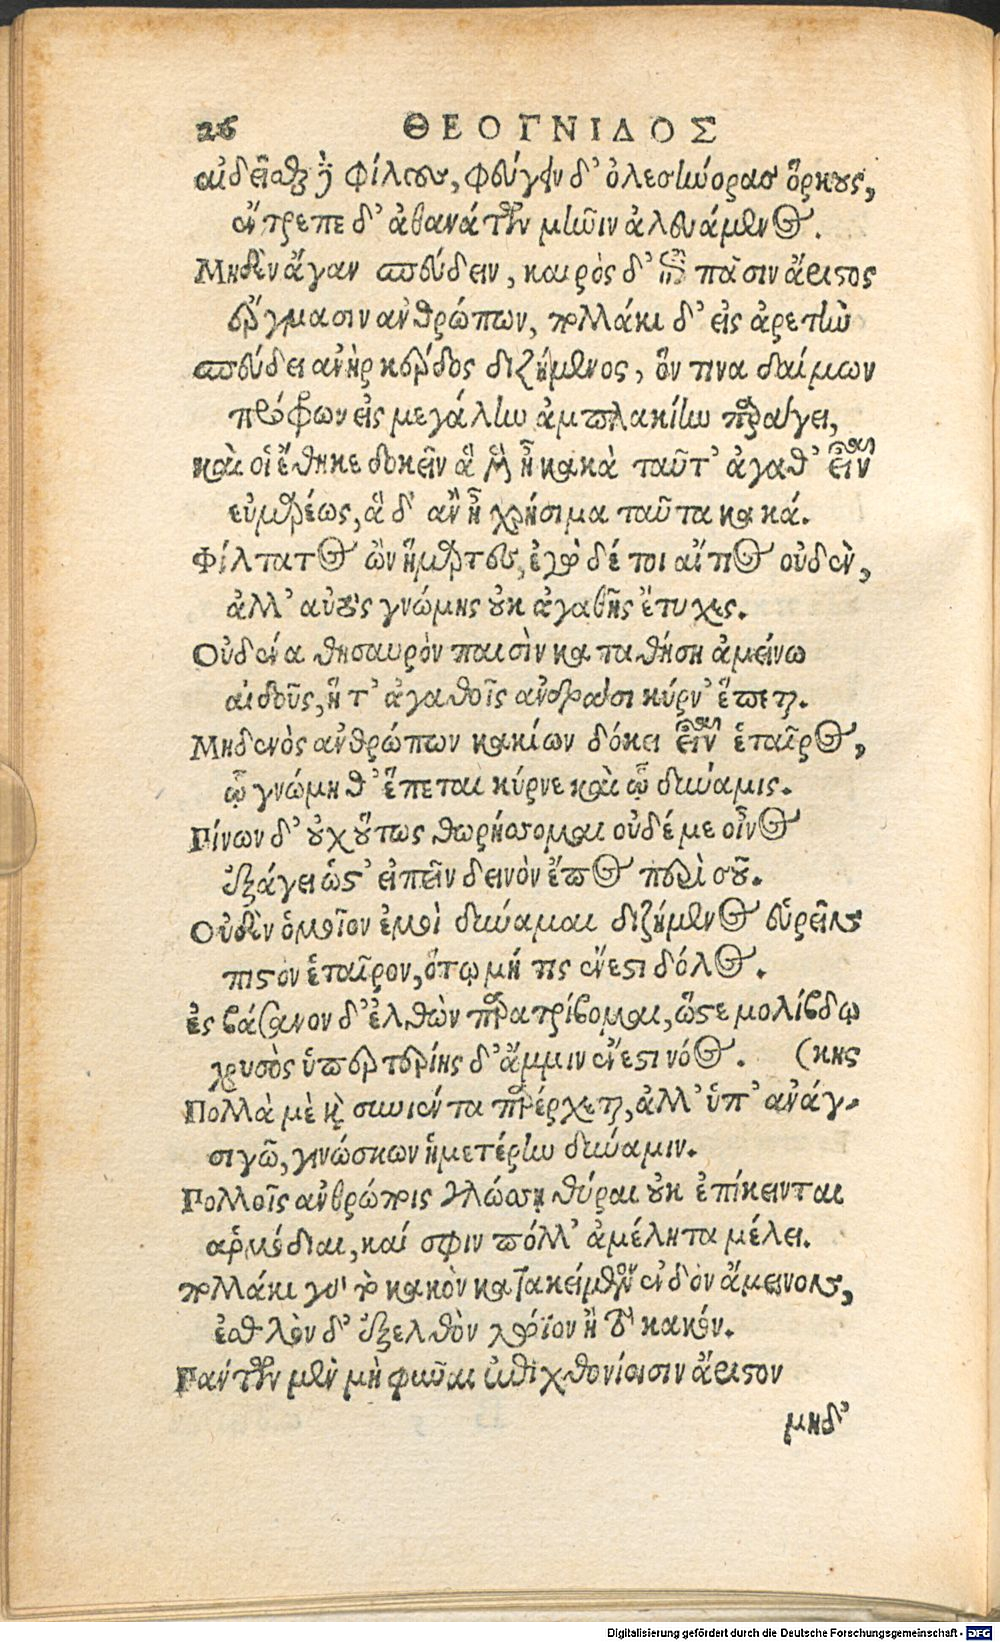 26 ΘΕΟΓΝΙΔΟΣ
αἰδεῖσθαι φίλους, φεύγειν δ᾽ ὀλεσήνορας ὅρκους,
ἔντρεπε δ᾽ ἀθανάτων μῆνιν ἀλευάμενος.
Μηδὲν ἄγαν σπεύδειν, καιρὸς δ᾽ ἐπὶ πᾶσιν ἄριστος
ἔργμασιν ἀνθρώπων, πολλάκι δ᾽ εἰς ἀρετὴν
σπεύδει ἀνὴρ κέρδος διζήμενος, ὅν τινα δαίμων
πρόφρων εἰς μεγάλην ἀμπλακίην παράγει,
καὶ οἱ ἔθηκε δοκεῖν ἃ μὲν ᾖ κακὰ ταῦτ᾽ ἀγαθ᾽ εἶναι
εὐμαρέως, ἃ δ᾽ ἂν ᾖ χρήσιμα ταῦτα κακά.
Φίλτατος ὢν ἥμαρτες, ἐγὼ δέ τοι αἴτιος οὐδὲν,
ἀλλ᾽ αὐτὸς γνώμης οὐκ ἀγαθῆς ἔτυχες.
Οὐδένα θησαυρὸν παισὶν καταθήσῃ ἀμείνω
αἰδοῦς, ἥ τ᾽ ἀγαθοῖς ἀνδράσι κύρν᾽ ἕπεται.
Μηδενὸς ἀνθρώπων κακίων δόκει εἶναι ἑταῖρος,
ᾧ γνώμη θ᾽ ἕπεται κύρνε καὶ ᾧ δύναμις.
Πίνων δ᾽ οὐχ οὕτως θωρήσομαι οὐδέ με οἶνος
ἐξάγει ὥστ᾽ εἰπεῖν δεινὸν ἔπος περὶ σοῦ.
Οὐδὲν ὁμοῖον ἐμοὶ δύναμαι διζήμενος εὑρεῖν
πιστὸν ἑταῖρον, ὅτῳ μή τις ἔνεστι δόλος.
ἐς βάσανον δ᾽ ἐλθὼν παρατρίβομαι, ὥστε μολίβδῳ
χρυσὸς ὑπερτερίης δ᾽ ἄμμιν ἔνεστι νόος. (κης
Πολλὰ μὲ καὶ συνιέντα παρέρχεται, ἀλλ᾽ ὑπ᾽ ἀνάγ-
σιγῶ, γινώσκων ἡμετέρην δύναμιν.
Πολλοῖς ἀνθρώποις γλώσσῃ θύραι οὐκ ἐπίκεινται
ἁρμόδιαι, καί σφιν πόλλ᾽ ἀμέλητα μέλει.
πολλάκι γὰρ τὸ κακὸν κατακείμενον ἔνδον ἄμεινον,
ἐσθλὸν δ᾽ ἐξελθὸν λώϊον ἢ τὸ κακόν.
Πάντων μὲν μὴ φῦναι ἐπιχθονίοισιν ἄριστον
μηδ᾽
Digitalisierung gefördert durch die Deutsche Forschungsgemeinschaft - DFG